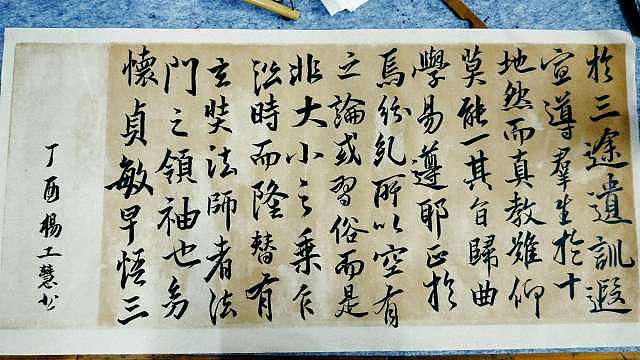 於三途遺訓遐
宣導羣生於十
地然而真教難仰
莫能一其旨歸曲
學易遵耶正於
焉紛糺所以空有
之論或習俗而是
非大小之乘乍
沿時而隆替有
玄奘法師者法
門之領袖也幼
懷貞敏早悟三
丁酉楊工慧書